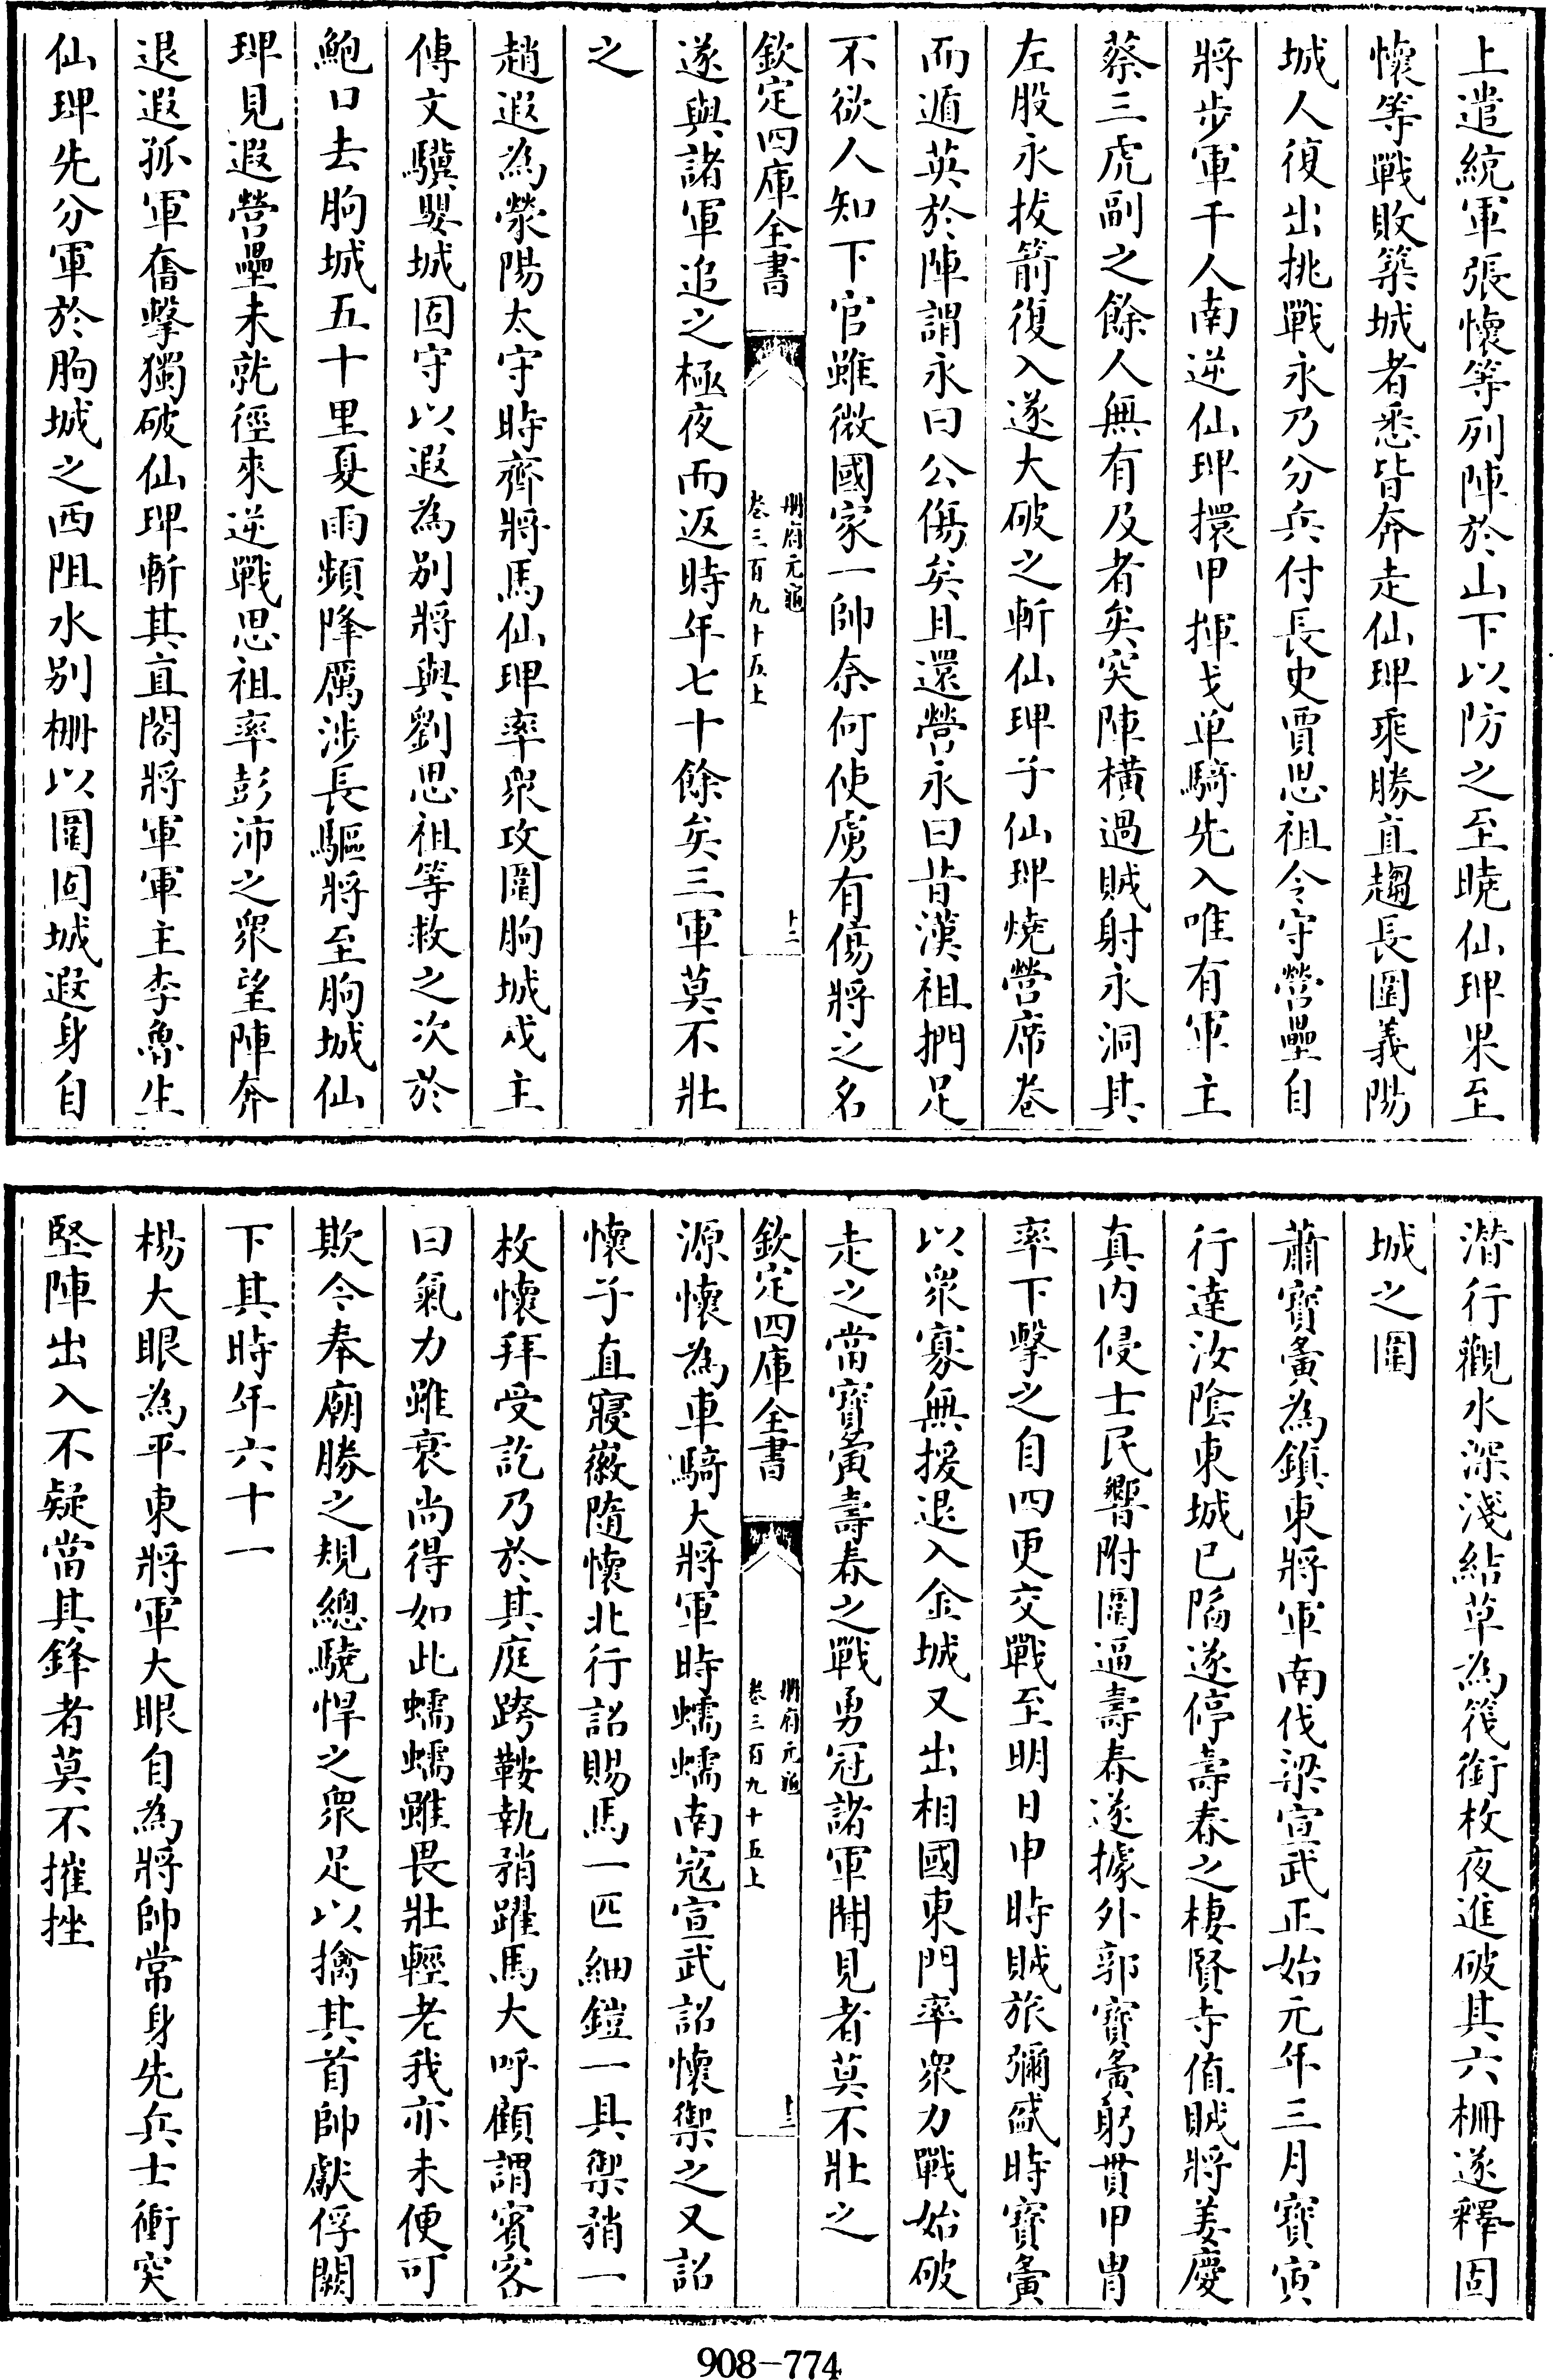 上遣統軍張懷等列陣於山下以防之至曉仙琕果至
懷等戰敗築城者悉皆奔走仙琕乘勝直趨長圍義陽
城人復出挑戰永乃分兵付長史賈思祖令守營壘自
將步軍千人南逆仙琕擐甲揮戈单騎先入唯有軍主
蔡三虎副之餘人無有及者矣突陣横過賊射永洞其
左股永拔箭復入遂大破之斬仙琕子仙琕燒營席卷
而遁英於陣謂永曰公傷矣且還營永曰昔漢祖捫足
不欲人知下官雖微國家一帥奈何使虜有傷將之名
欽定四庫全書
册府元龜
卷三百九十五上
十二
遂與諸軍追之極夜而返時年七十餘矣三軍莫不壯
之
趙遐為滎陽太守時齊將馬仙琕率衆攻圍朐城戍主
傅文驥嬰城固守以遐為别將與劉思祖等救之次於
鮑口去朐城五十里夏雨頻降厲涉長驅將至朐城仙
琕見遐營壘未就徑來逆戰思祖率彭沛之衆望陣奔
退遐孤軍奮擊獨破仙琕斬其直閤將軍軍主李魯生
仙琕先分軍於朐城之西阻水别柵以圍固城遐身自
潛行觀水深淺結草為筏銜枚夜進破其六柵遂釋固
城之圍
蕭寶夤為鎮東將軍南伐梁宣武正始元年三月寶寅
行達汝陰東城已陷遂停壽春之棲賢寺值賊將姜慶
真内侵士民響附圍逼壽春遂據外郭寶夤躬貫甲胄
率下擊之自四更交戰至明日申時賊旅彌盛時寶夤
以衆寡無援退入金城又出相國東門率衆力戰始破
走之當寶寅壽春之戰勇冠諸軍聞見者莫不壯之
欽定四庫全書
册府元龜
卷三百九十五上
十三
源懷為車騎大將軍時蠕蠕南寇宣武詔懷禦之又詔
懷子直寢徽隨懷北行詔賜馬一匹細鎧一具禦矟一
枚懷拜受訖乃於其庭跨鞍執矟躍馬大呼顧謂賓客
曰氣力雖衰尚得如此蠕蠕雖畏壯輕老我亦未便可
欺今奉廟勝之規總驍悍之衆足以擒其首帥獻俘闕
下其時年六十一
楊大眼為平東將軍大眼自為將帥常身先兵士衝突
堅陣出入不疑當其鋒者莫不摧挫
908-774